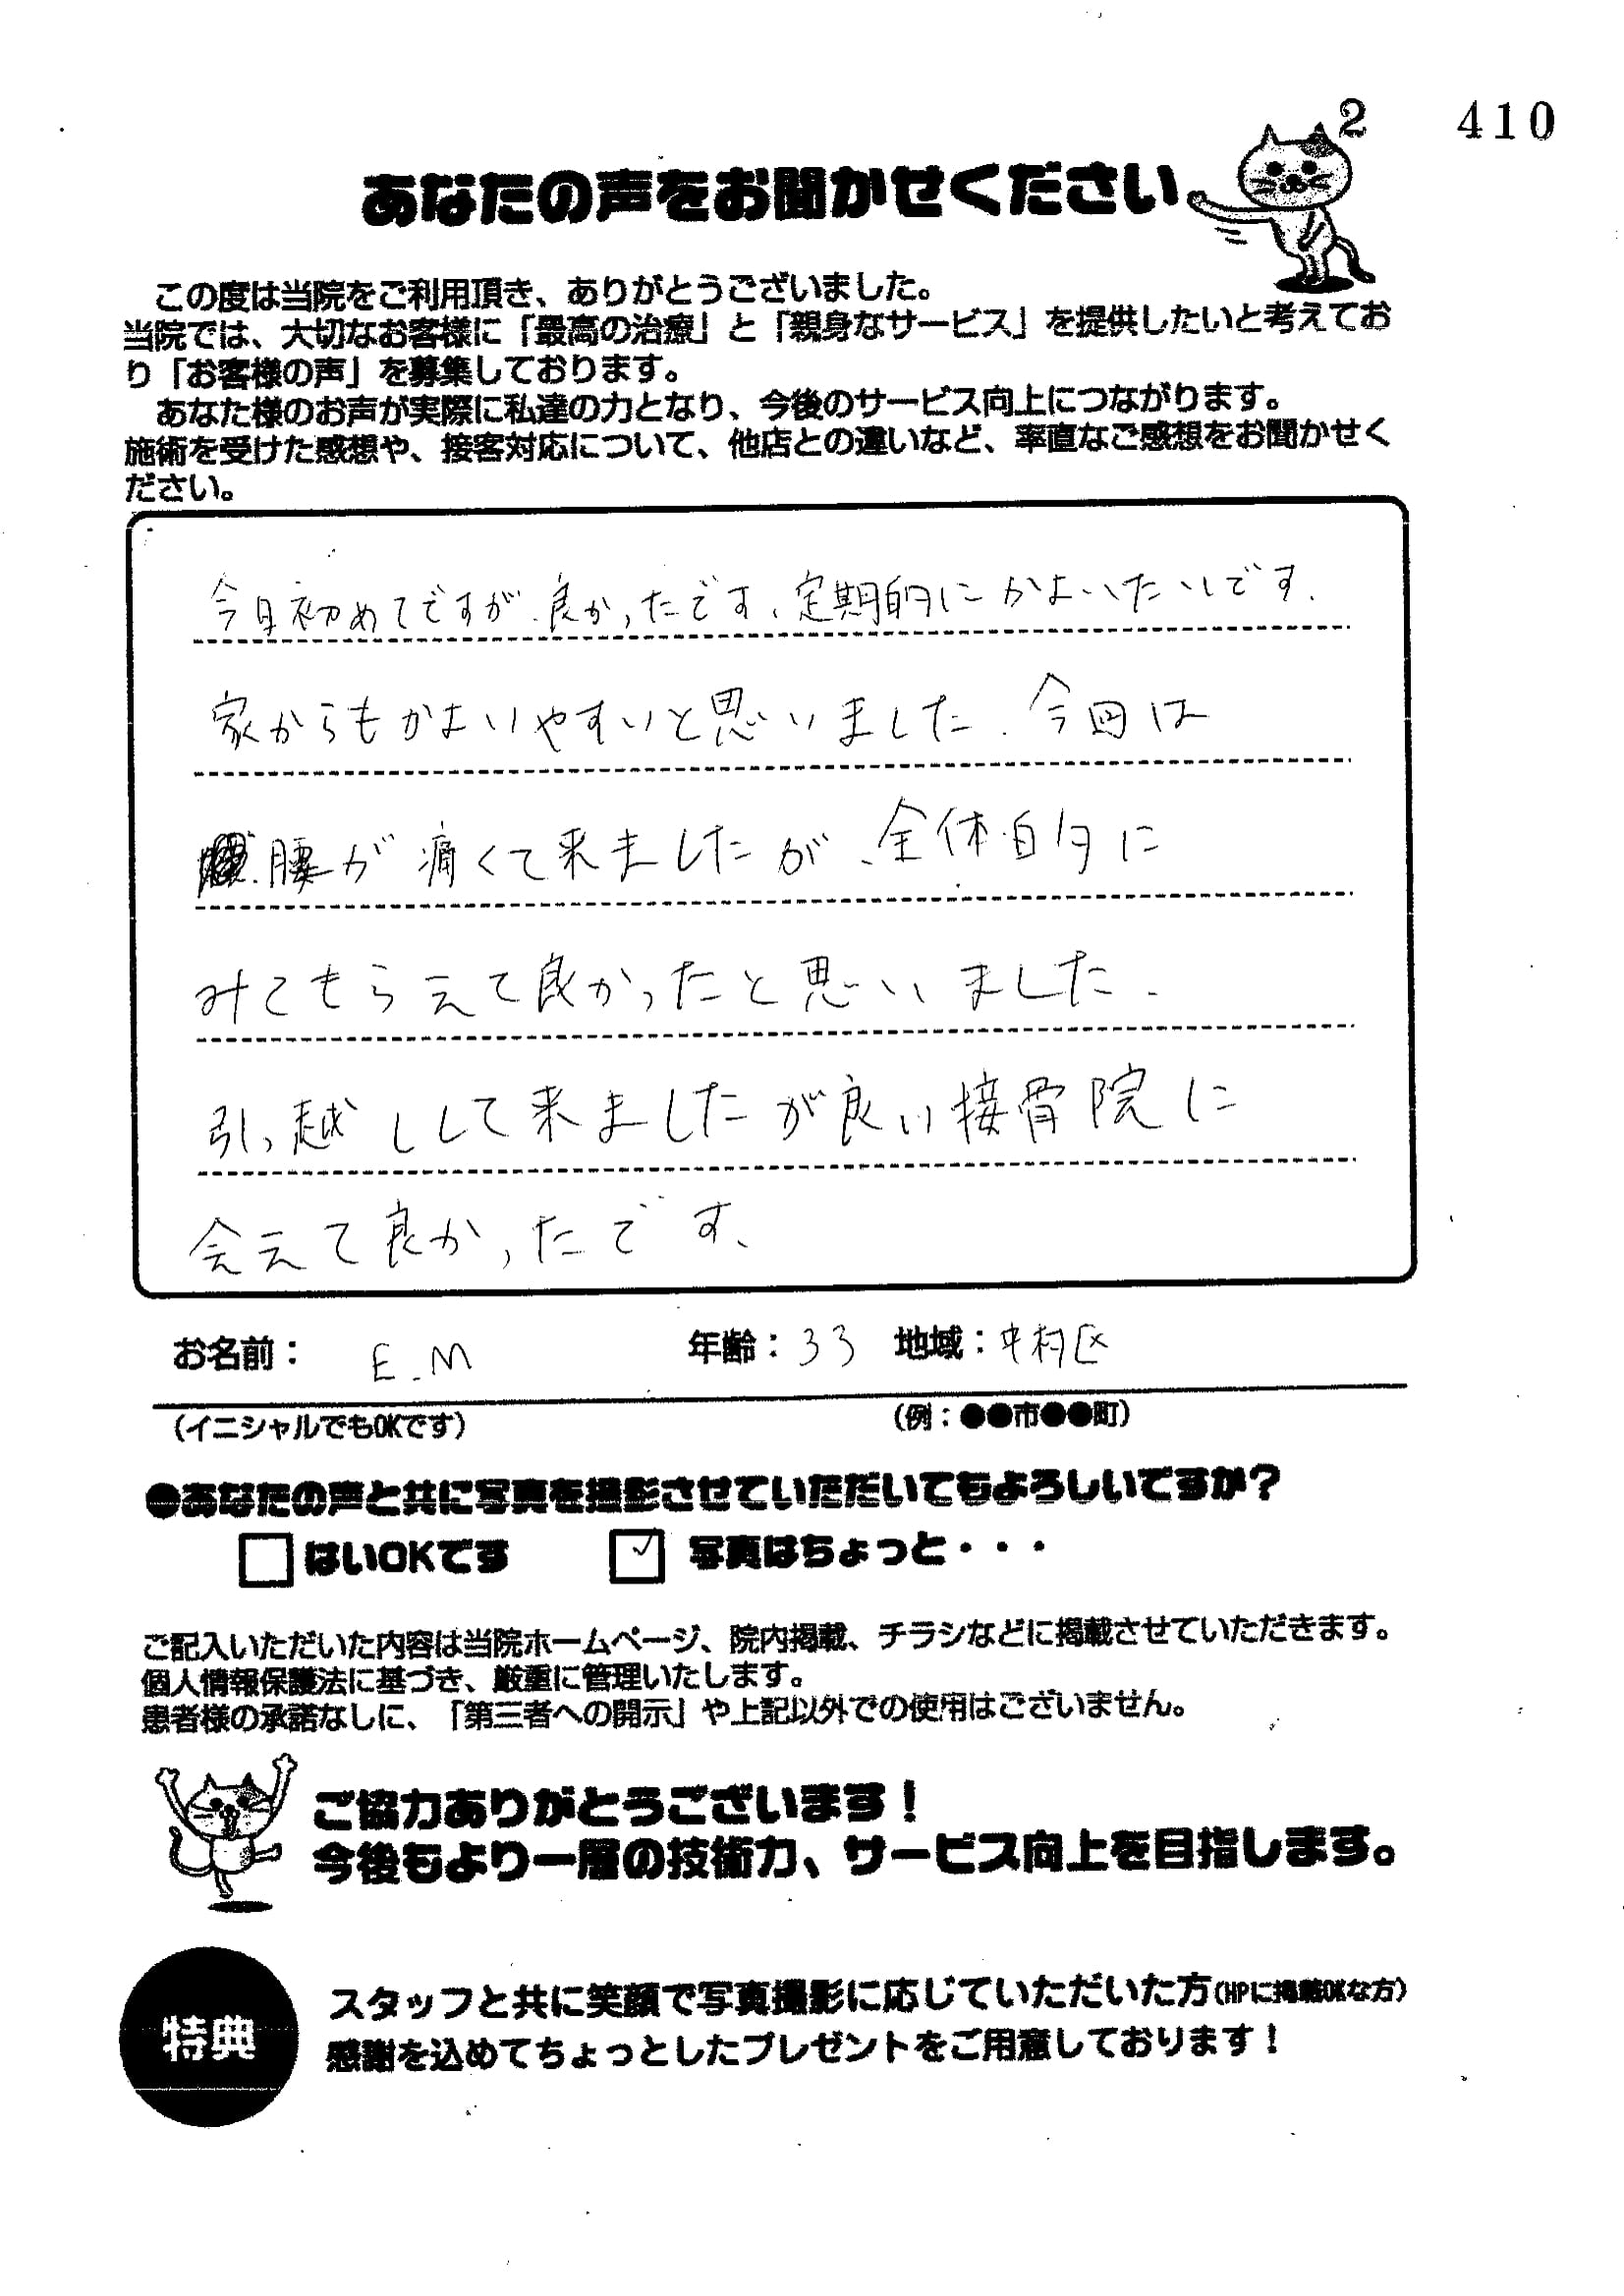 2 410
あなたの声をお聞かせください
この度は当院をご利用頂き、ありがとうございました。
当院では、大切なお客様に「最高の治療」と「親身なサービス」を提供したいと考えてお
り「お客様の声」を募集しております。
あなた様のお声が実際に私達の力となり、今後のサービス向上につながります。
施術を受けた感想や、接客対応について、他店との違いなど、率直なご感想をお聞かせく
ださい。
今日初めてですが、良かったです、定期的にかよいたいです.
家からもかよいやすいと思いました. 今回は
腰が痛くて来ましたが、全体的に
みてもらえて良かったと思いました.
引っ越しして来ましたが良い接骨院に
会えて良かったです、
お名前： E.M 年齢：33 地域：中村区
（イニシャルでもOKです） （例：●●市●●町）
●あなたの声と共に写真を撮影させていただいてもよろしいですか？
はいOKです ✓ 写真はちょっと・・・
ご記入いただいた内容は当院ホームページ、院内掲載、チラシなどに掲載させていただきます。
個人情報保護法に基づき、厳重に管理いたします。
患者様の承諾なしに、「第三者への開示」や上記以外での使用はございません。
ご協力ありがとうございます！
今後もより一層の技術力、サービス向上を目指します。
特典
スタッフと共に笑顔で写真撮影に応じていただいた方（HPに掲載OKな方）
感謝を込めてちょっとしたプレゼントをご用意しております！